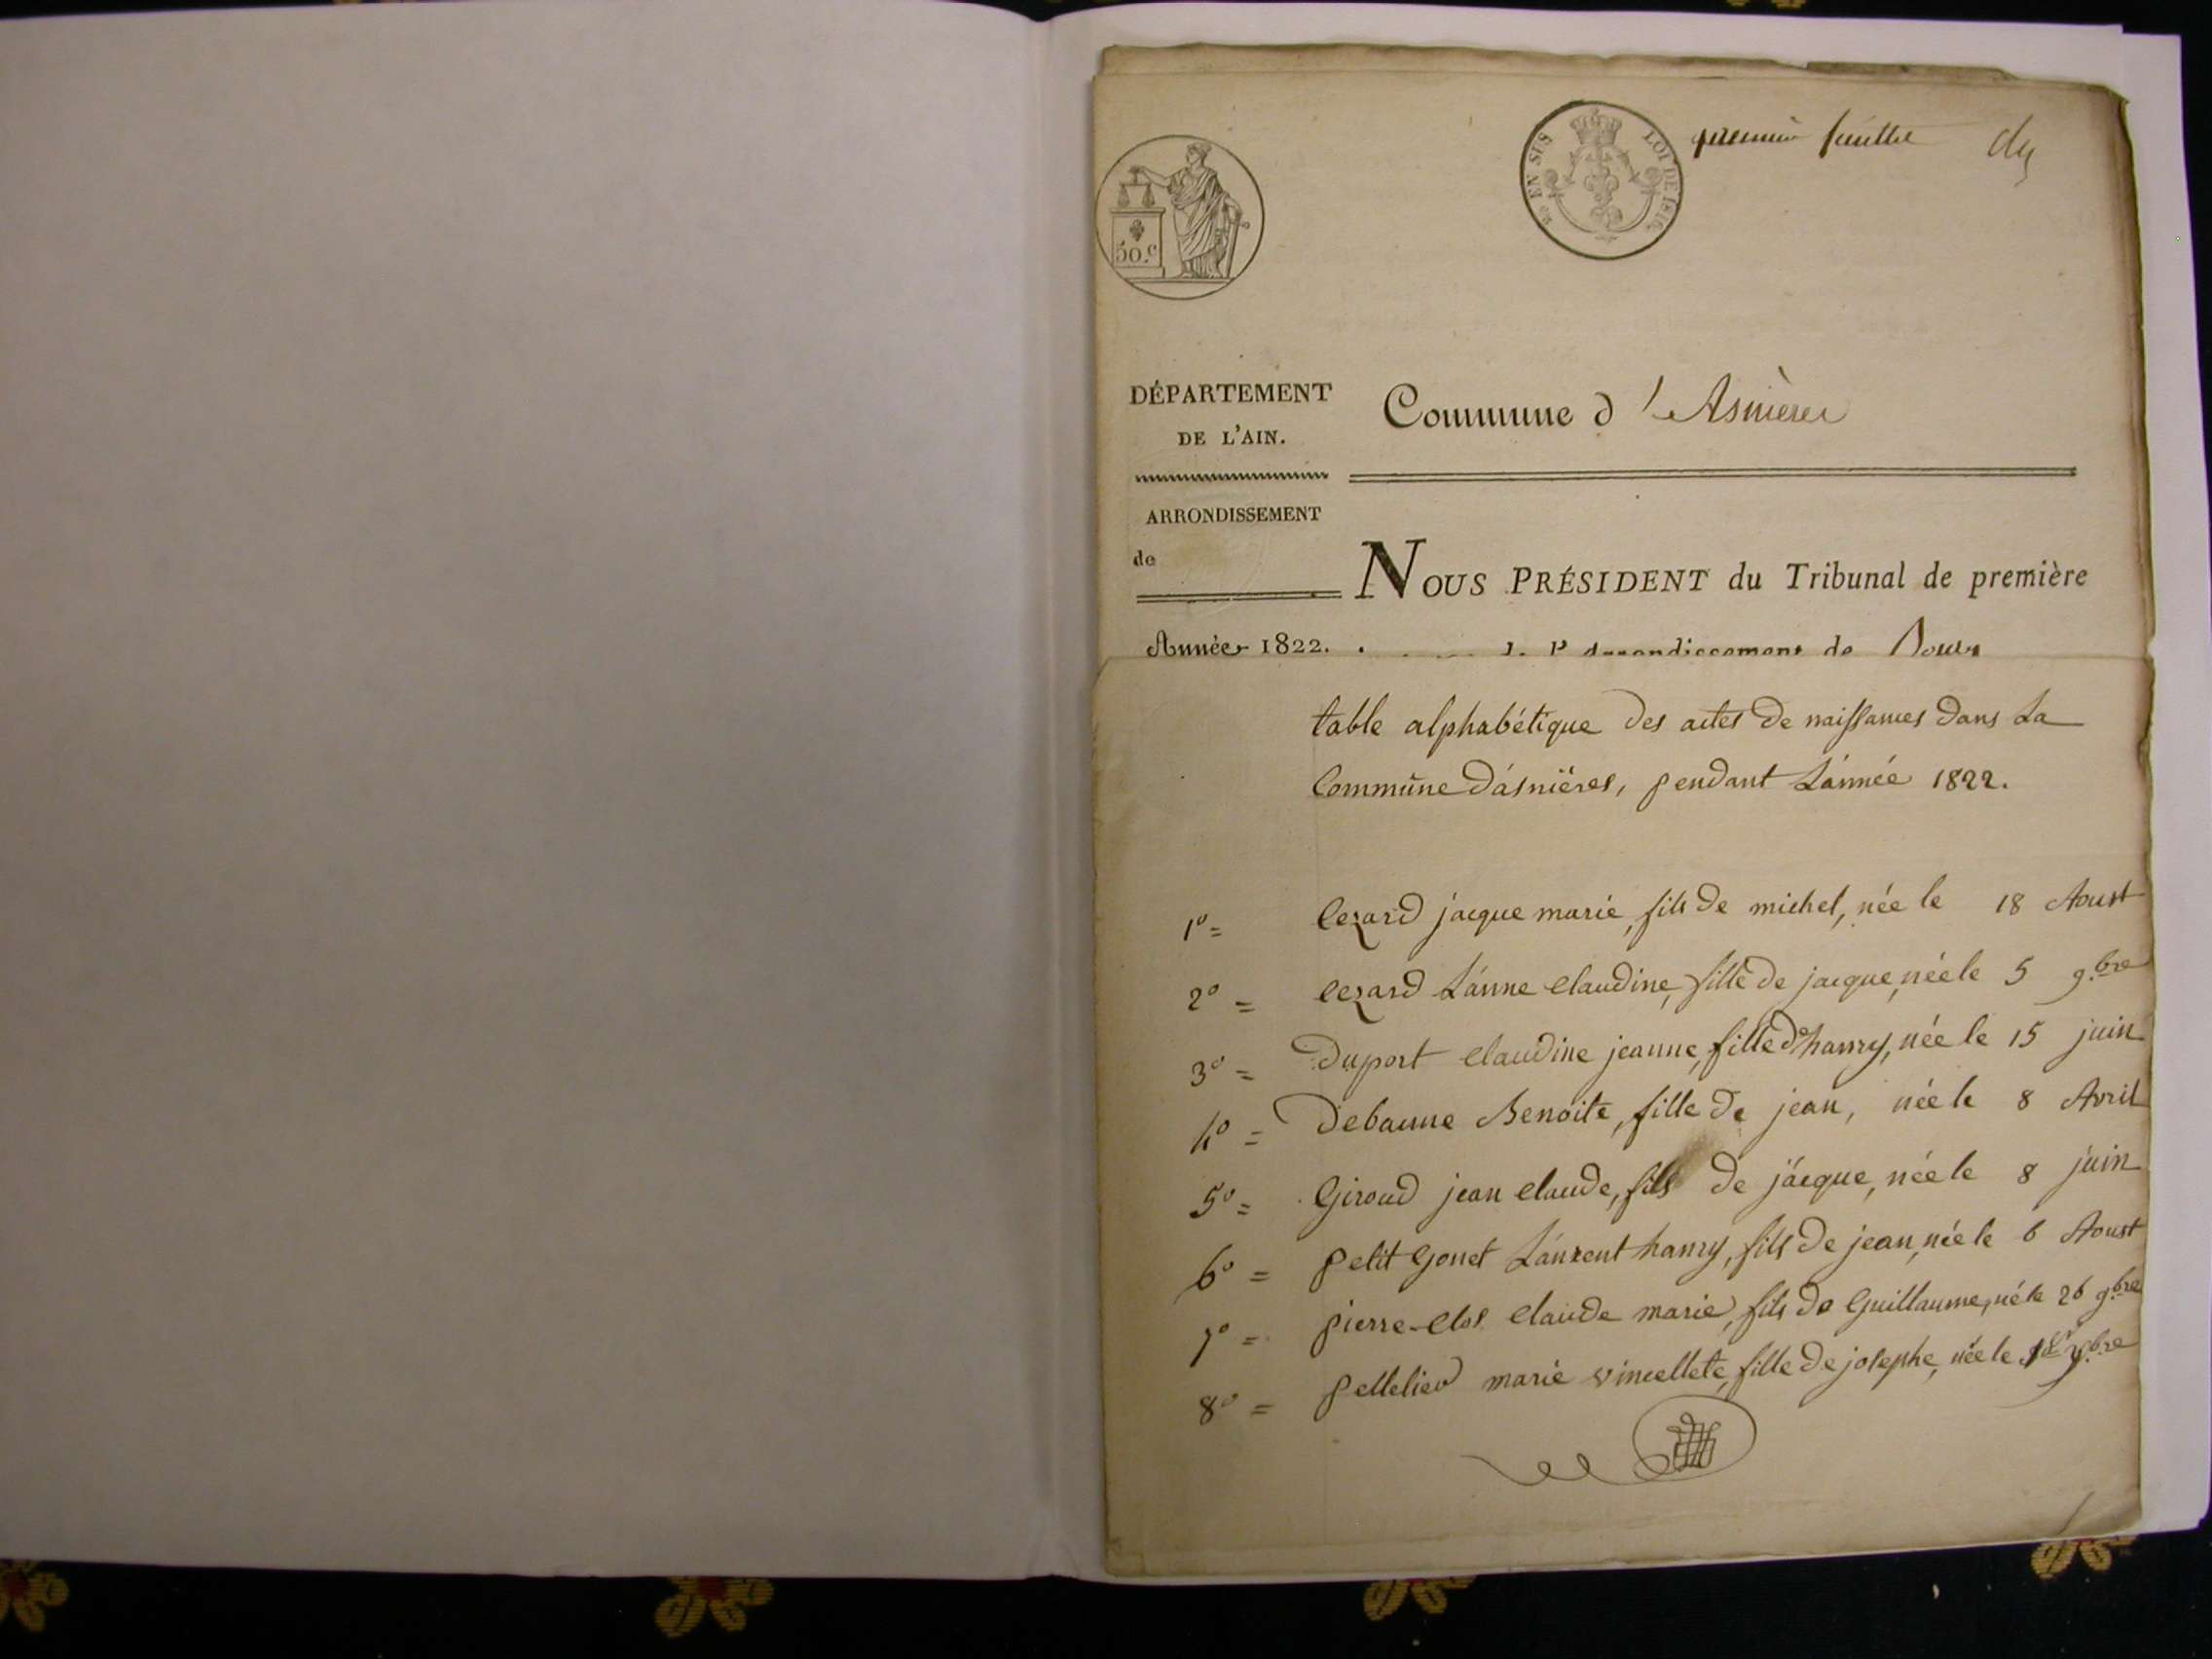 premier feuillet
EN SUS LOI DE 1816.
50.c
DÉPARTEMENT
DE L'AIN.
Commune d'Asnieres
ARRONDISSEMENT
de
NOUS PRÉSIDENT du Tribunal de première
Année 1822.
de l'Arrondissement de Bourg
table alphabétique des actes de naissances dans La
Commune d'ásnières, pendant L'ánnée 1822.
1º = Cezard jacque marie, fils de michel, née le 18 Aoust
2º = Cezard L'ánne Claudine, fille de jacque, née le 5 9.bre
3º = Duport Claudine jeanne, fille d'hanry, née le 15 juin
4º = Debaune Benoite, fille de jean, née le 8 Avril
5º = Giroud jean Claude, fils de jácque, née le 8 juin
6º = petit Gonet Láurent hanry, fils de jean, née le 6 Aoust
7º = pierre-Clos Claude marie, fils de Guillaume, né le 26 9.bre
8º = pelletier marie vincellete, fille de josephe, née le